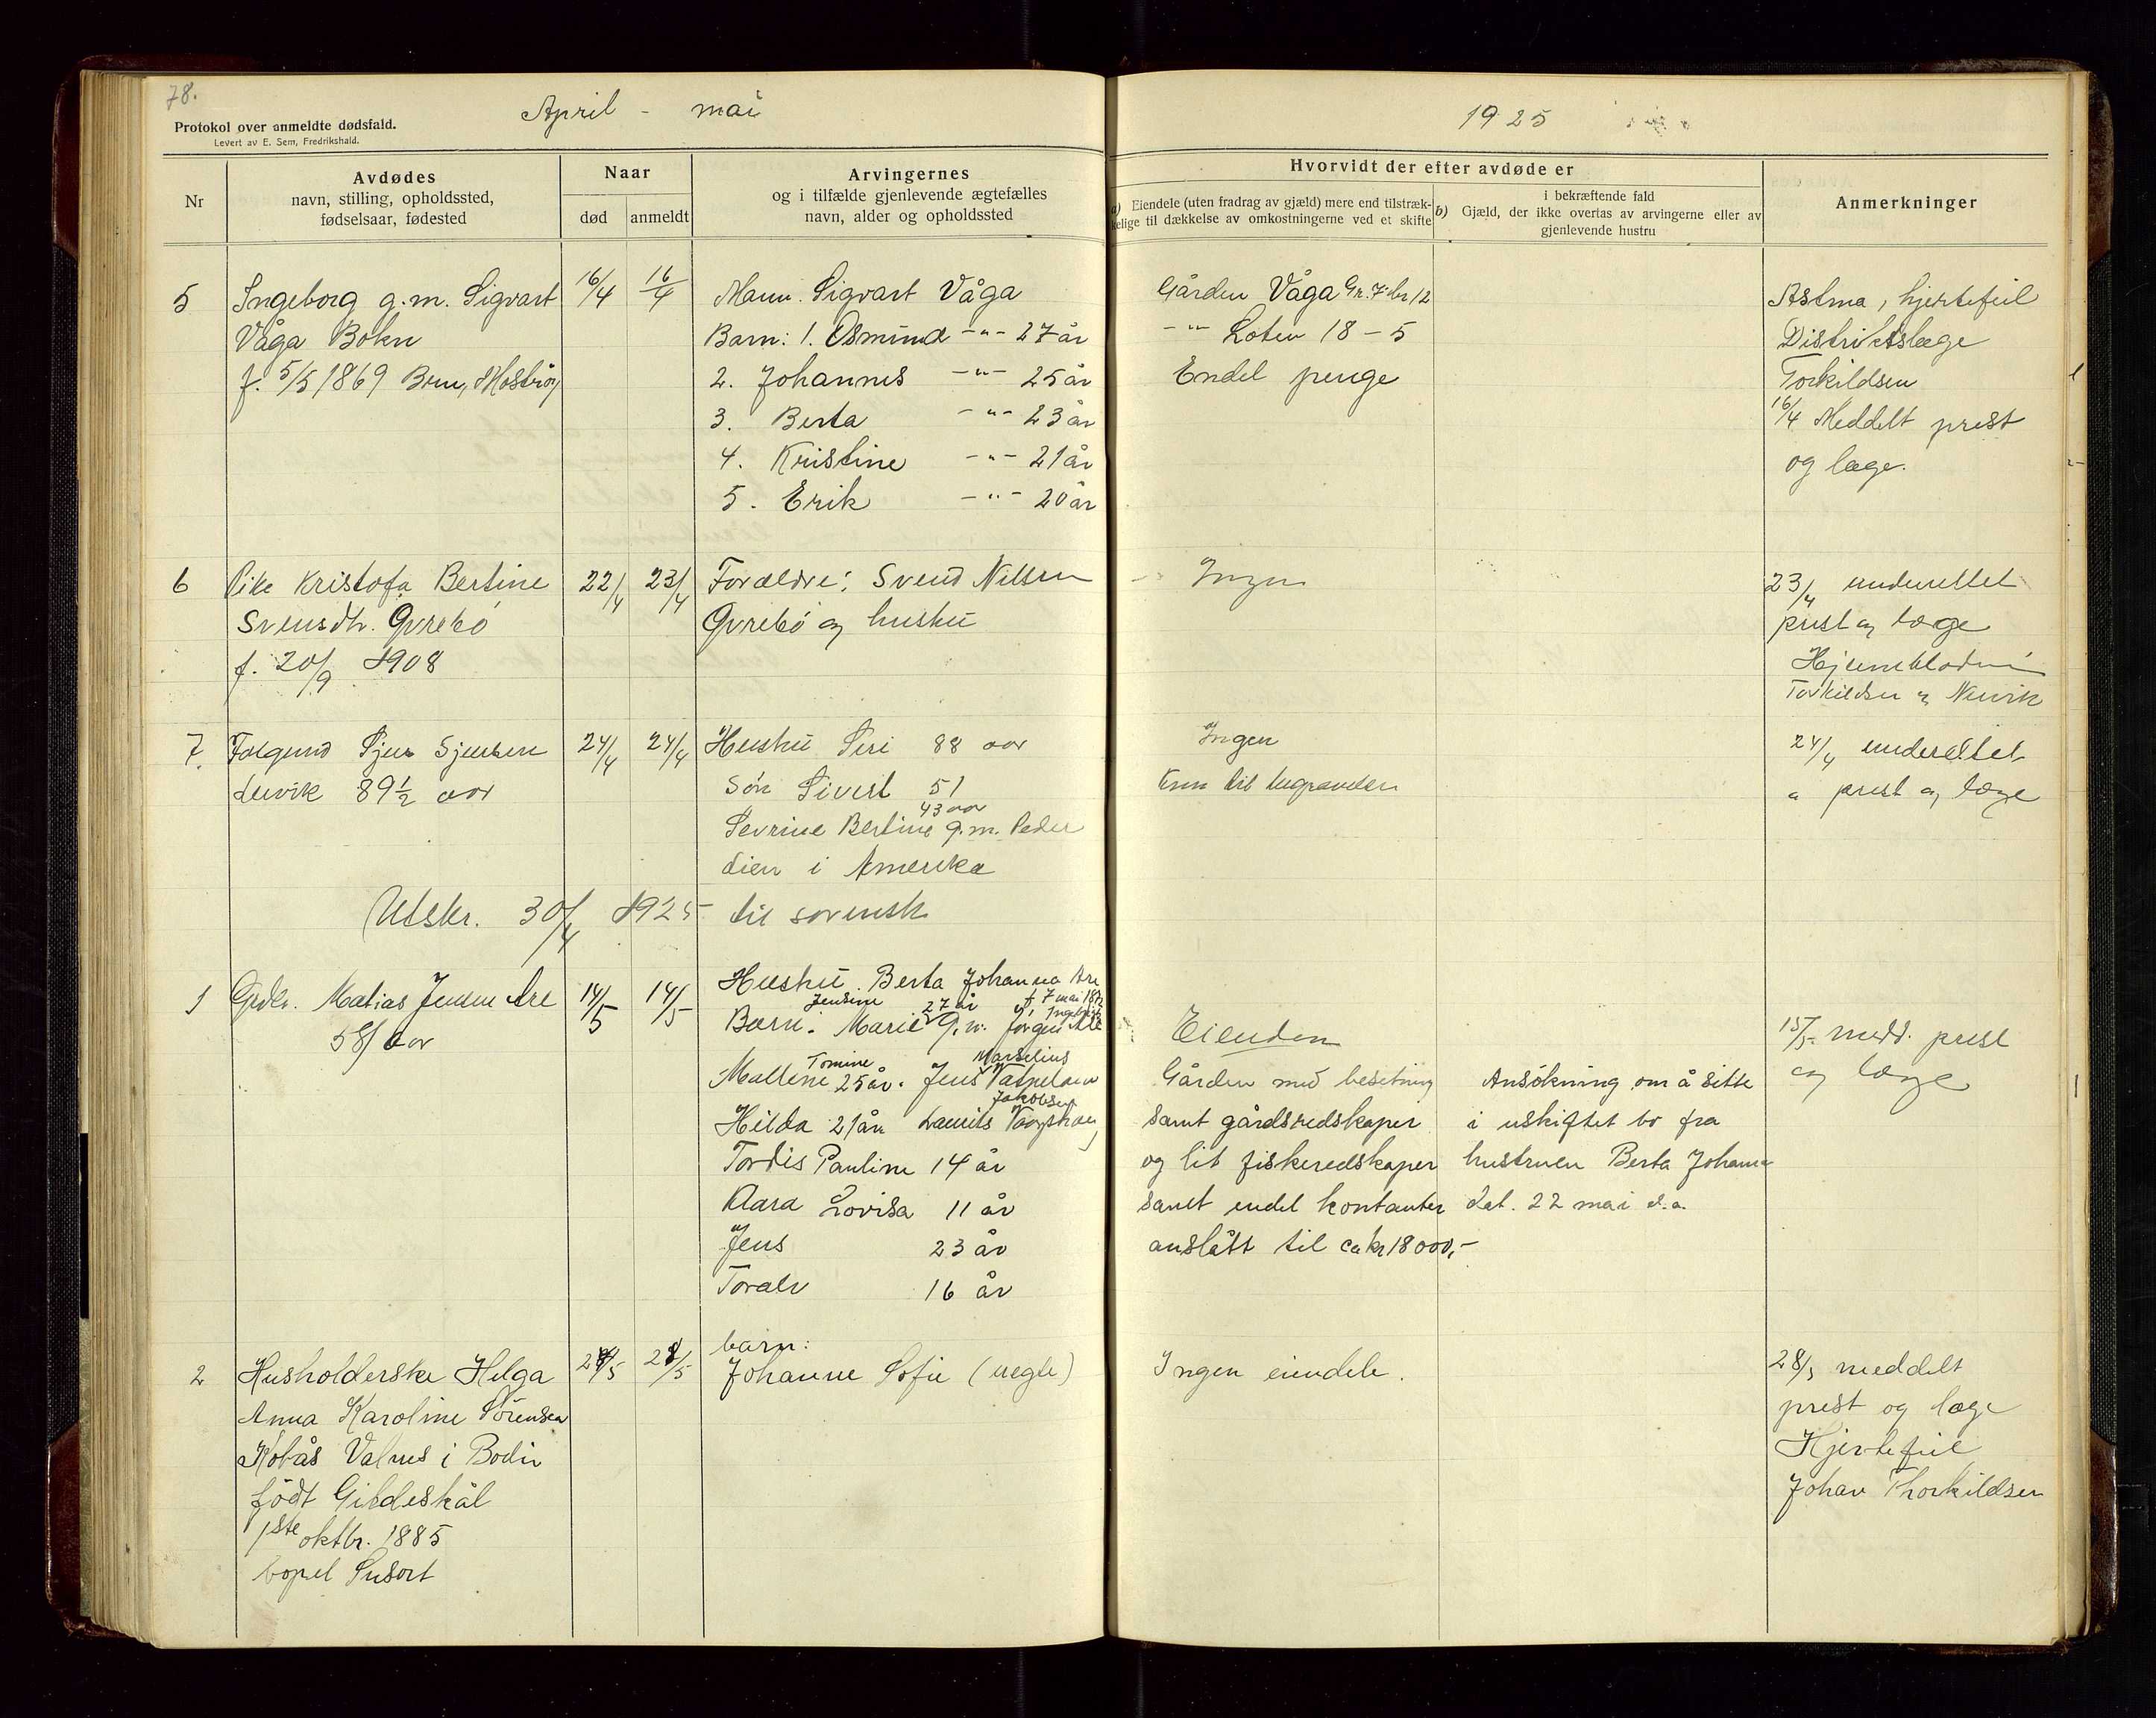 78.
April - mai
1925
Protokol over anmeldte dødsfald.
Levert av E. Sem, Fredrikshald.
Nr
Avdødes
navn, stilling, opholdssted,
fødselsaar, fødested
Naar
død
anmeldt
Arvingernes
og i tilfælde gjenlevende ægtefælles
navn, alder og opholdssted
Hvorvidt der efter avdøde er
a) Eiendele (uten fradrag av gjæld) mere end tilstræk-
kelige til dækkelse av omkostningerne ved et skifte
b) i bekræftende fald
Gjæld, der ikke overtas av arvingerne eller av
gjenlevende hustru
Anmerkninger
5
Ingeborg g.m. Sigvart
Våga Bokn
f. 5/5 1869 Bru, Mosterøy
16/4
16/4
Mann. Sigvart Våga
Barn: 1. Osmund -"- 27 år
2. Johannes -"- 25 år
3. Berta -"- 23 år
4. Kristine -"- 21 år
5. Erik -"- 20 år
Gården Våga Gr. 7 br 12
-"- Loten 18-5
Endel penge
Astma, hjertefeil
Distriktslæge
Torkildsen
16/4 Meddelt prest
og læge.
6
Pike Kristofa Bertine
Svensdtr. Gvrebø
f. 20/9 1908
22/4
23/4
Forældre: Svend Nilsen
Gvrebø og hustru
Ingen
23/4 underrettet
prest og læge
Torkildsen og Nervik
7.
Sjur Sjursen
89½ aar
24/4
24/4
Hustru Siri 88 aar
Søn Sivert 51
43 aar
Sevrine Bertine g.m. Peder
i Amerika
Ingen
Kun til begravelsen
24/4 underrettet
prest og læge
Utskr. 30/4 1925 til sorensk.
1
Grdbr. Matias Jensen Are
58 aar
14/5
14/5
Hustru. Berta Johanna Are
f. 7 mai 1872
Jensine 27 år Ingebrigt
Barn: Marie g.m. Jørgen Are
Tomine Marselius
Mallene 25 år. Jens Vatneland
Jakobsen
Hilda 21 år Laurits
Tordis Pauline 14 år
Klara Lovisa 11 år
Jens 23 år
Toralv 16 år
Eiendom
Gården med besetning
samt gårdsredskaper
og lit fiskeredskaper
samt endel kontanter
anslått til ca kr 18000,-
Ansøkning om å sitte
i uskiftet bo fra
hustruen Berta Johanna
dat. 22 mai d.a.
15/5 medd. prest
og læge
2
Husholderske Helga
Anna Karoline Sørensen
Kobås Valnes i Bodin
født Gildeskål
1ste oktbr. 1885
bopel Susort
28/5
28/5
barn:
Johanne Sofie (uegte)
Ingen eiendele.
28/5 meddelt
prest og læge
Hjertefeil
Johan Thorkildsen